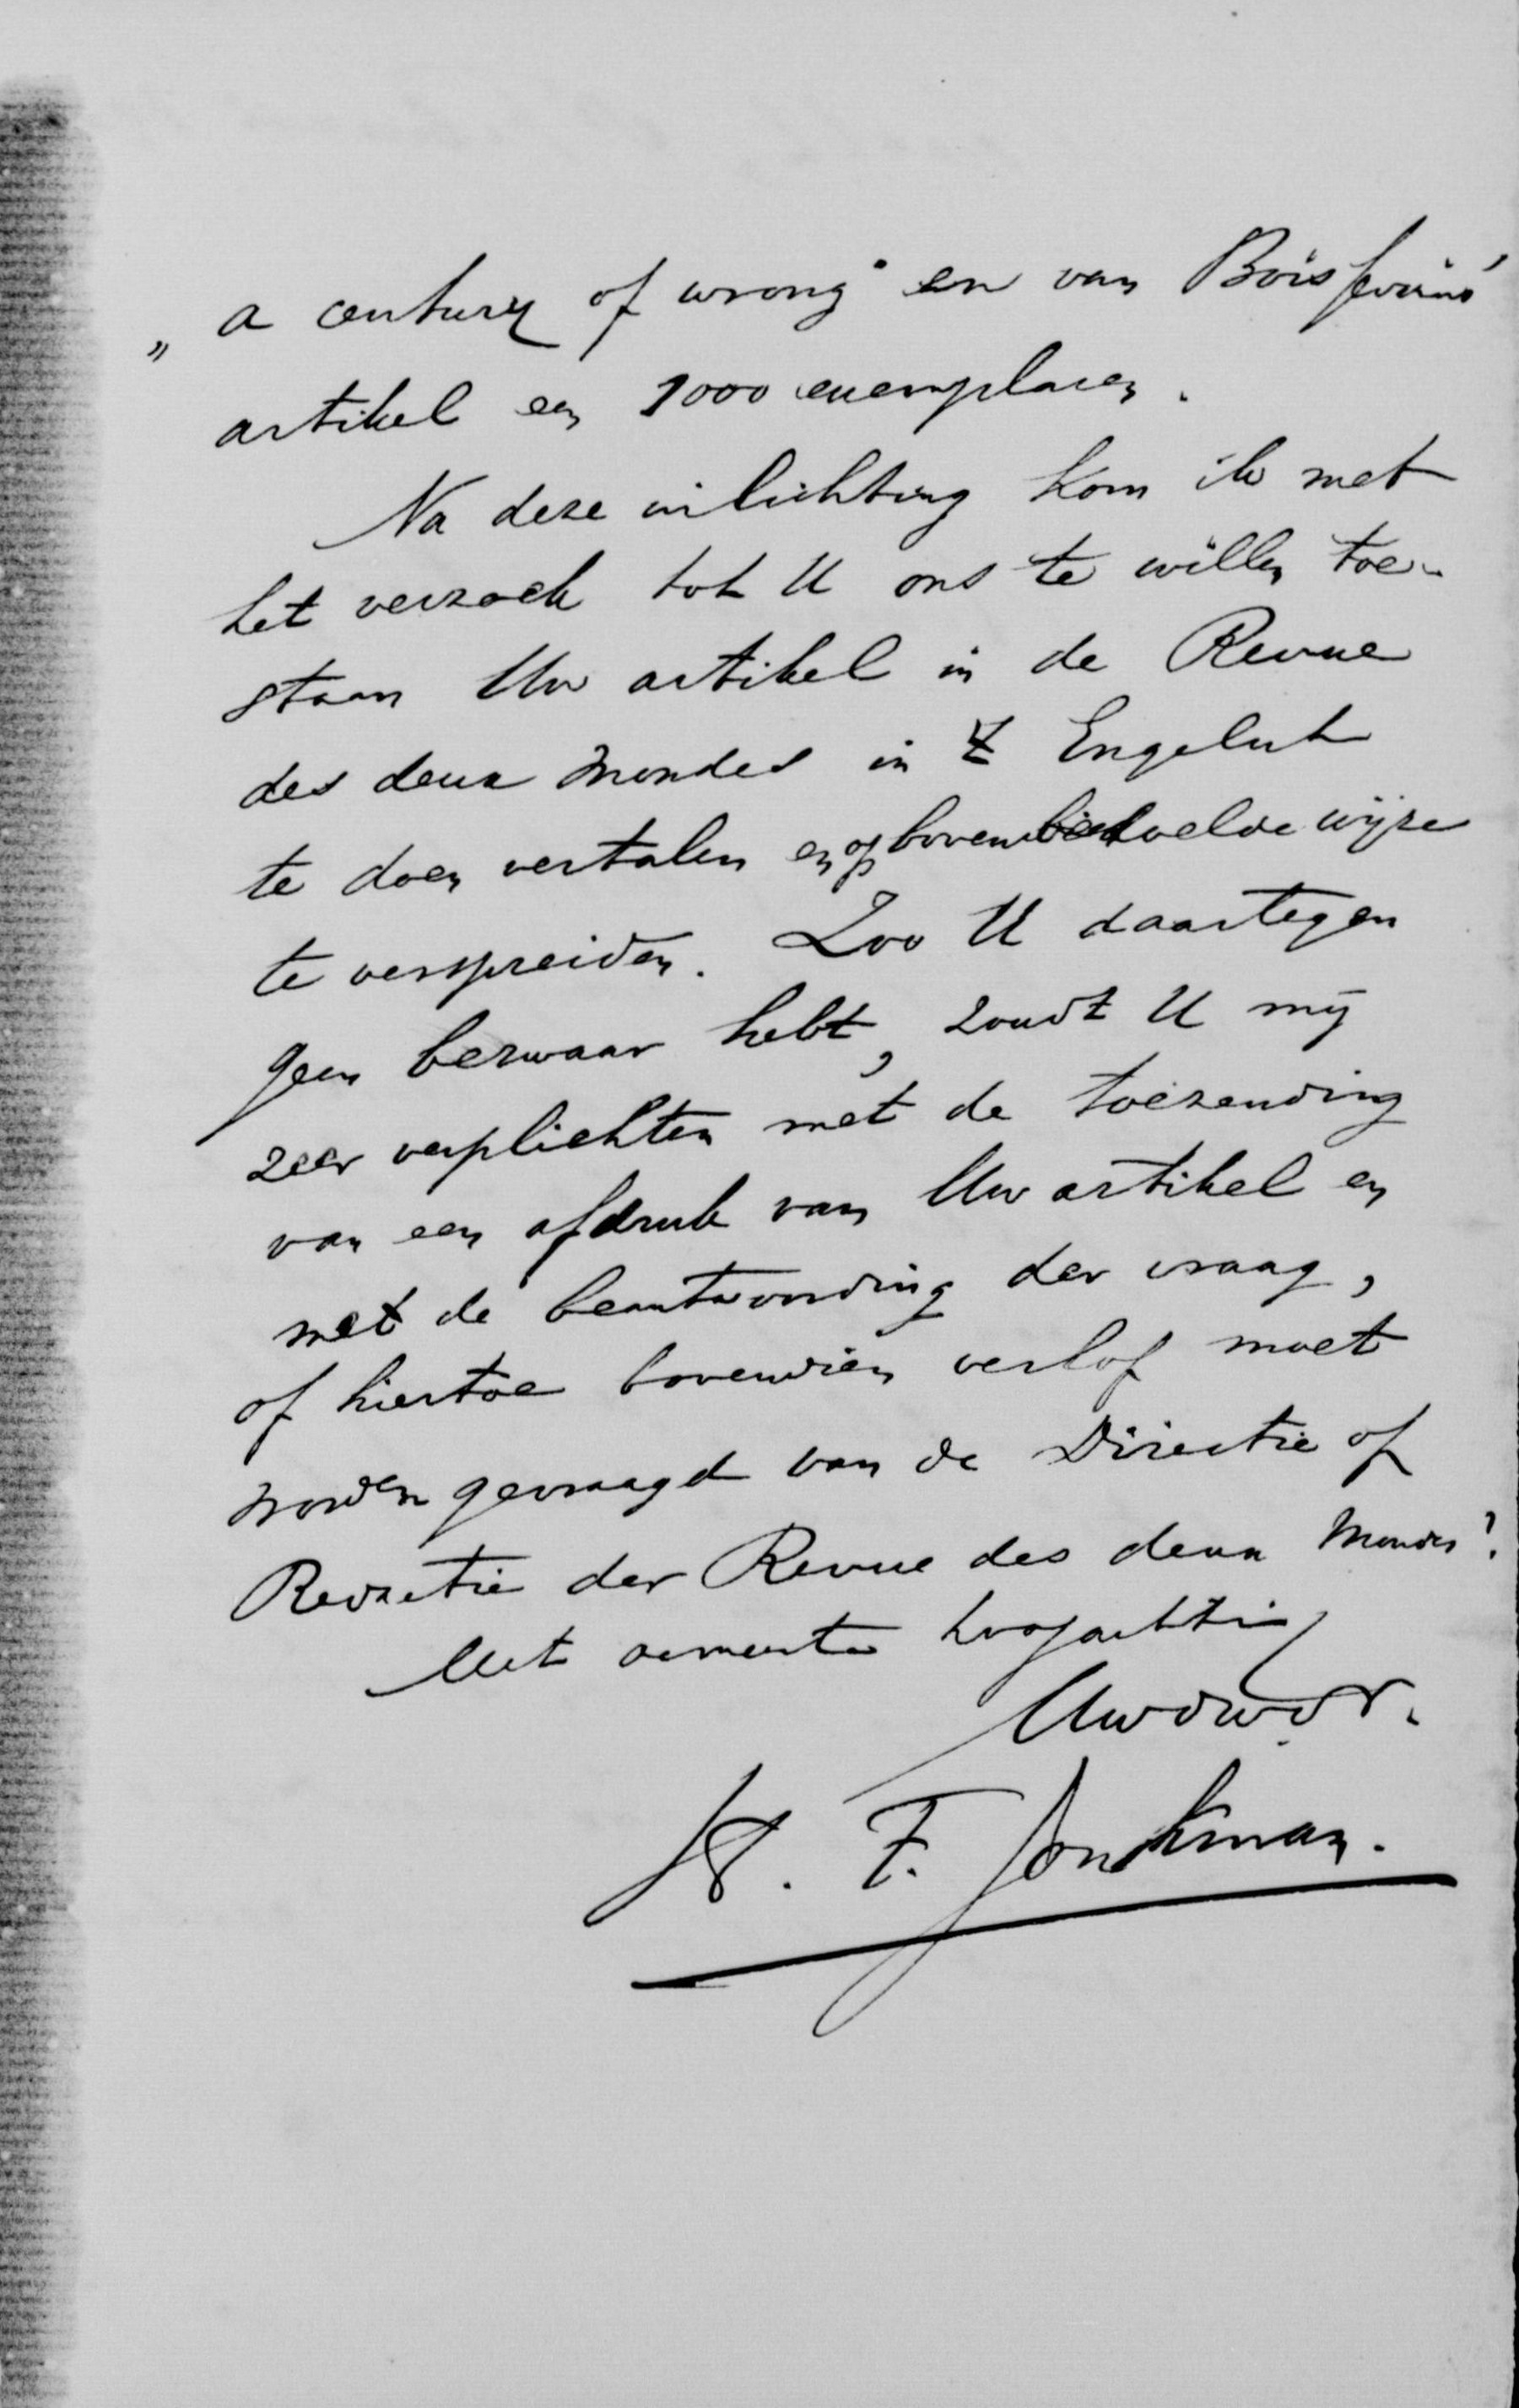 „a century of wrong" en van Boissevain's
artikel een 1000 exemplaren.
Na deze inlichting kom ik met
het verzoek tot U ons te willen toe-
staan Uw artikel in de Revue
des deux Mondes in 't Engelsch
te doen vertalen en op bovenbedoelde wijze
te verspreiden. Zoo U daartegen
geen bezwaar hebt, zoudt U mij
zeer verplichten met de toezending
van een afdruk van Uw artikel en
met de beantwoording der vraag,
of hiertoe bovendien verlof moet
worden gevraagd van de Directie of
Redactie der Revue des deux Mondes?
Met de meeste hoogachting
Uwdwdr.
H. F. Jonkman.